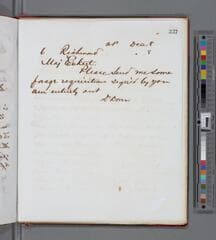 227
6 Richmond
Maj Eckert.
Please Send me Some
forage requisitions signed by you
am entirely out